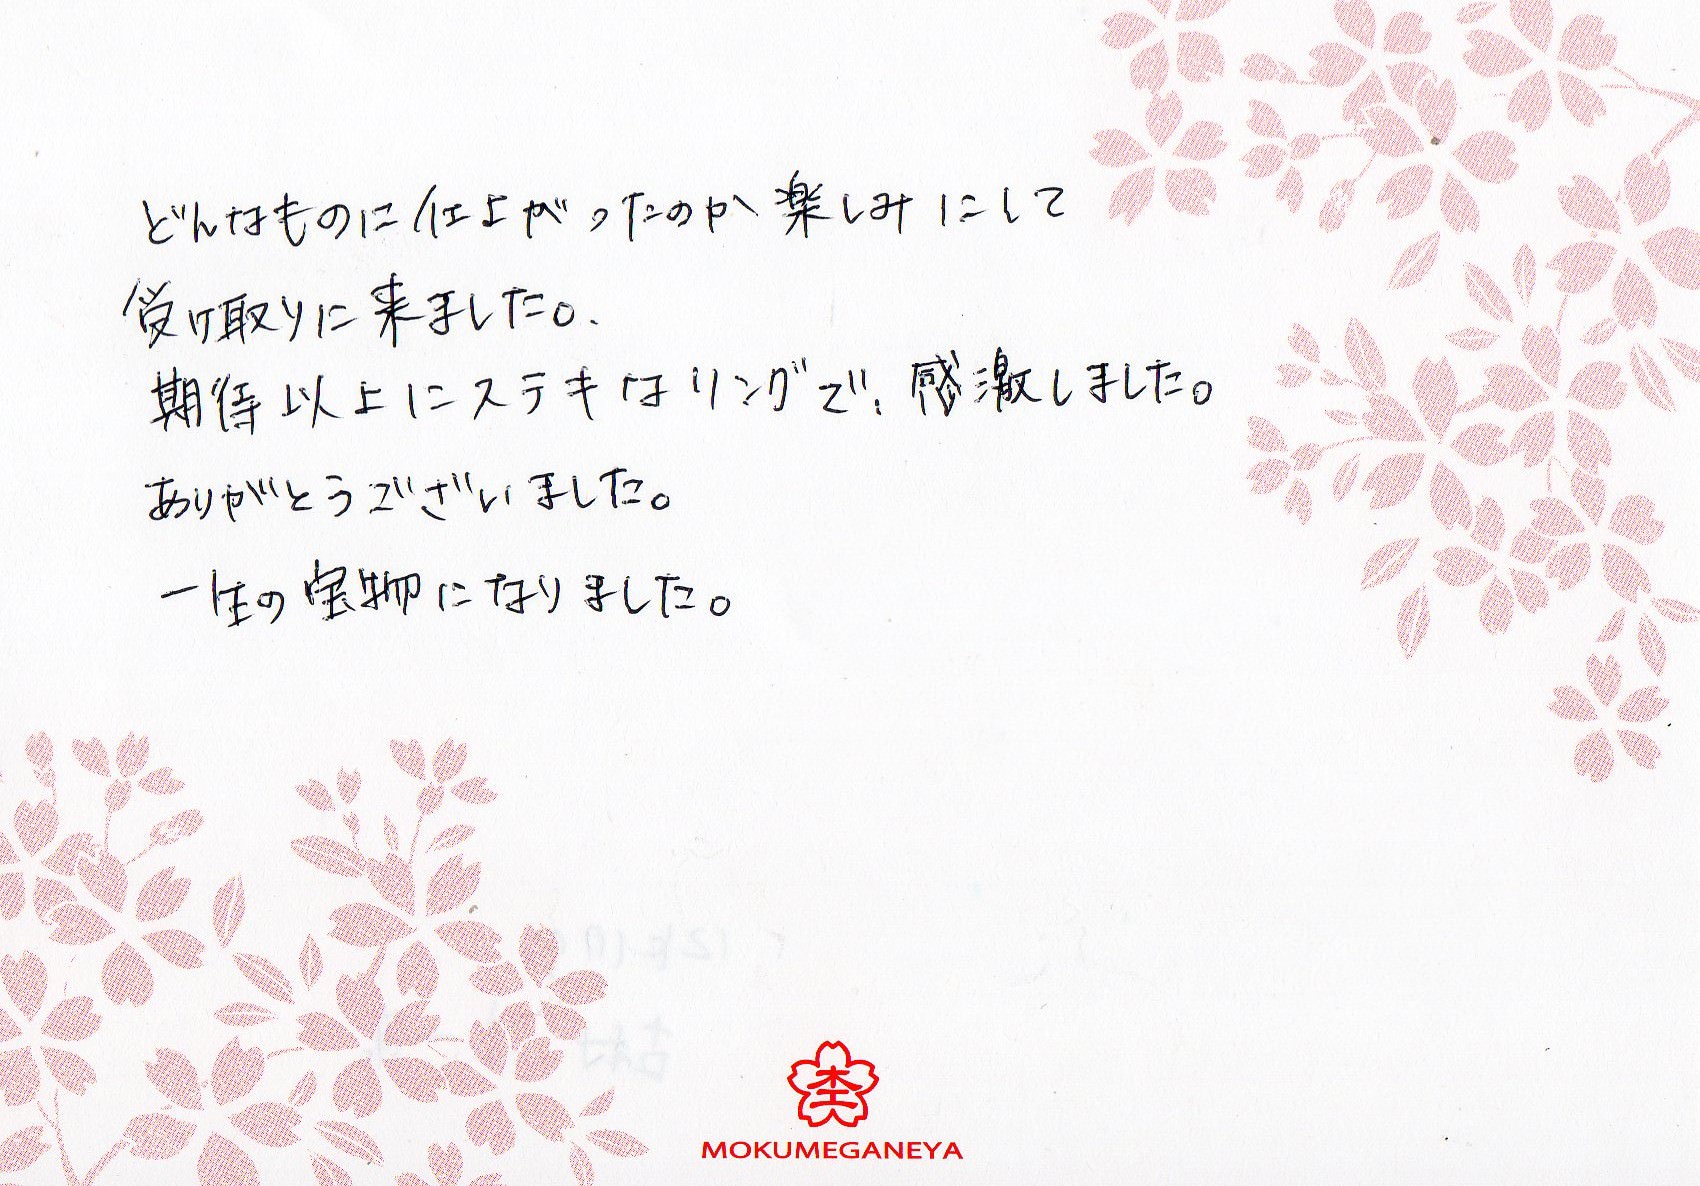 どんなものに仕上がったのか楽しみにして
受け取りに来ました。
期待以上にステキなリングで、感激しました。
ありがとうございました。
一生の宝物になりました。
MOKUMEGANEYA